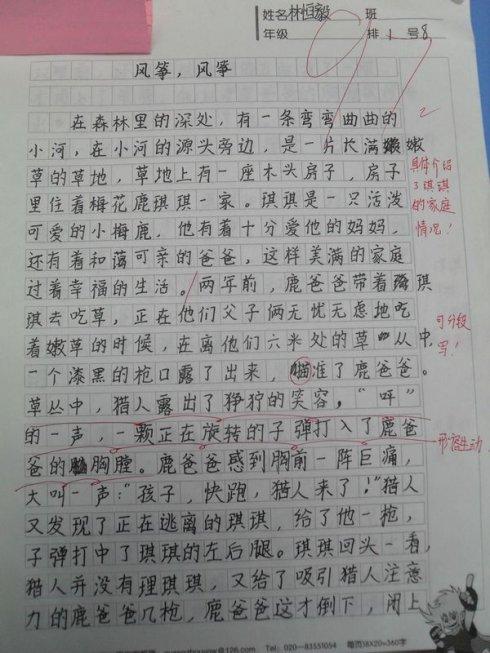 姓名 林恒毅 班
年级 排 1 号 8
风筝，风筝
在森林里的深处，有一条弯弯曲曲的
小河，在小河的源头旁边，是一片长满嫩
草的草地，草地上有一座木头房子，房子
里住着梅花鹿琪琪一家。琪琪是一只活泼
可爱的小梅鹿，他有着十分爱他的妈妈，
还有着和蔼可亲的爸爸，这样美满的家庭
过着幸福的生活。两年前，鹿爸爸带着琪
琪去吃草，正在他们父子俩无忧无虑地吃
着嫩草的时候，在离他们六米处的草丛中，
一个漆黑的枪口露了出来，瞄准了鹿爸爸。
草丛中，猎人露出了狰狞的笑容，“呯”
的一声，一颗正在旋转的子弹打入了鹿爸
爸的胸膛。鹿爸爸感到胸前一阵巨痛，
大叫一声：“孩子，快跑，猎人来了！”猎人
又发现了正在逃离的琪琪，给了他一枪，
子弹打中了琪琪的左后腿。琪琪回头一看，
猎人并没有理琪琪，又给了吸引猎人注意
力的鹿爸爸几枪，鹿爸爸这才倒下，闭上
具体介绍
了琪琪
的家庭
情况！
可分段
写！
形容生动
@126.com Tel: 020—83551054 每页18X20=360字